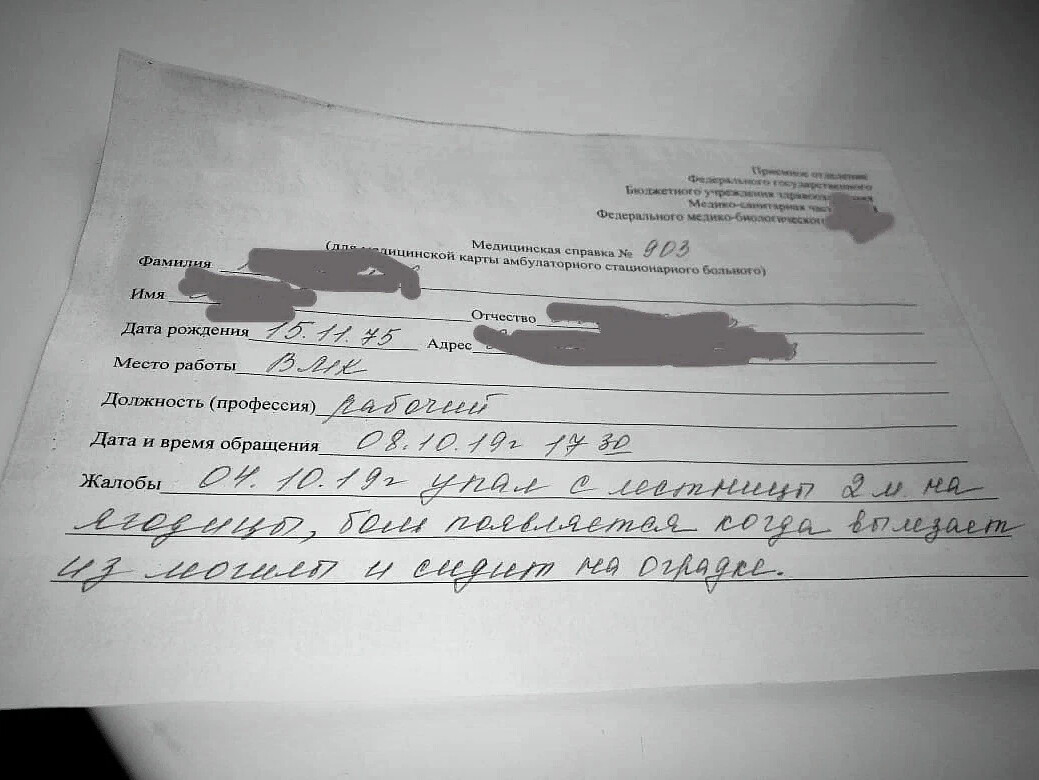 Приемное отделение
Федерального государственного
Бюджетного учреждения
Медико-санитарная
Федерального медико-биологического
Медицинская справка № 903
медицинской карты амбулаторного стационарного больного)
Фамилия
Имя
Отчество
Дата рождения 15.11.75 Адрес
Место работы
Должность (профессия) рабочий
Дата и время обращения 08.10.19г 17 30
Жалобы 04.10.19г упал с лестницы 2 м. на
ягодицы, боли появляется когда вылезает
из могилы и сидит на оградке.